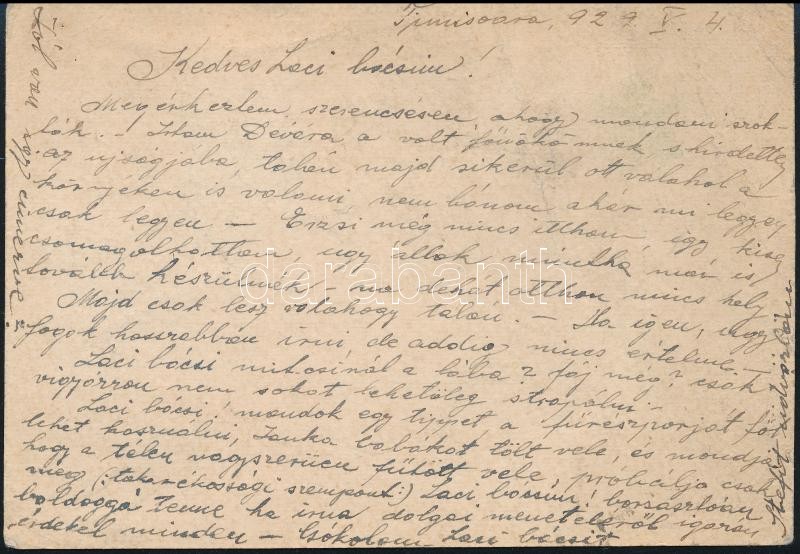 Timisoara, 929 V. 4.
Kedves Laci bácsim!
Megérkeztem szerencsésen, ahogy mondani szok-
ták. – Írtam Dévára a volt főnökömnek, s hirdettem
az ujságjába, talán majd sikerül ott valahol a
környéken is valami, nem bánom akár mi legyen
csak legyen – Erzsi még nincs itthon, így kise
csomagolkodtam, ugy állok mintha már is
tovább készülnék – na de hát otthon nincs hely
Majd csak lesz valahogy talán. – Ha igen, ugy
fogok hosszabban irni de addig nincs értelme –
Laci bácsi mit csinál a lába? fáj még? csak
vigyázzon nem sokat lehetőleg strapálni –
Laci bácsi! mondok egy tippet a fűrészporját föl
lehet használni, Janka babákat tölt vele, és mondja
hogy a télen nagyszerüen fűtött vele, próbálja csak
meg (: takarékossági szempont :) Laci bácsim! borzasztóan
boldoggá tenne ha irna dolgai menetéléről igazán
érdekel minden – Csókolom Laci bácsit
darabanth